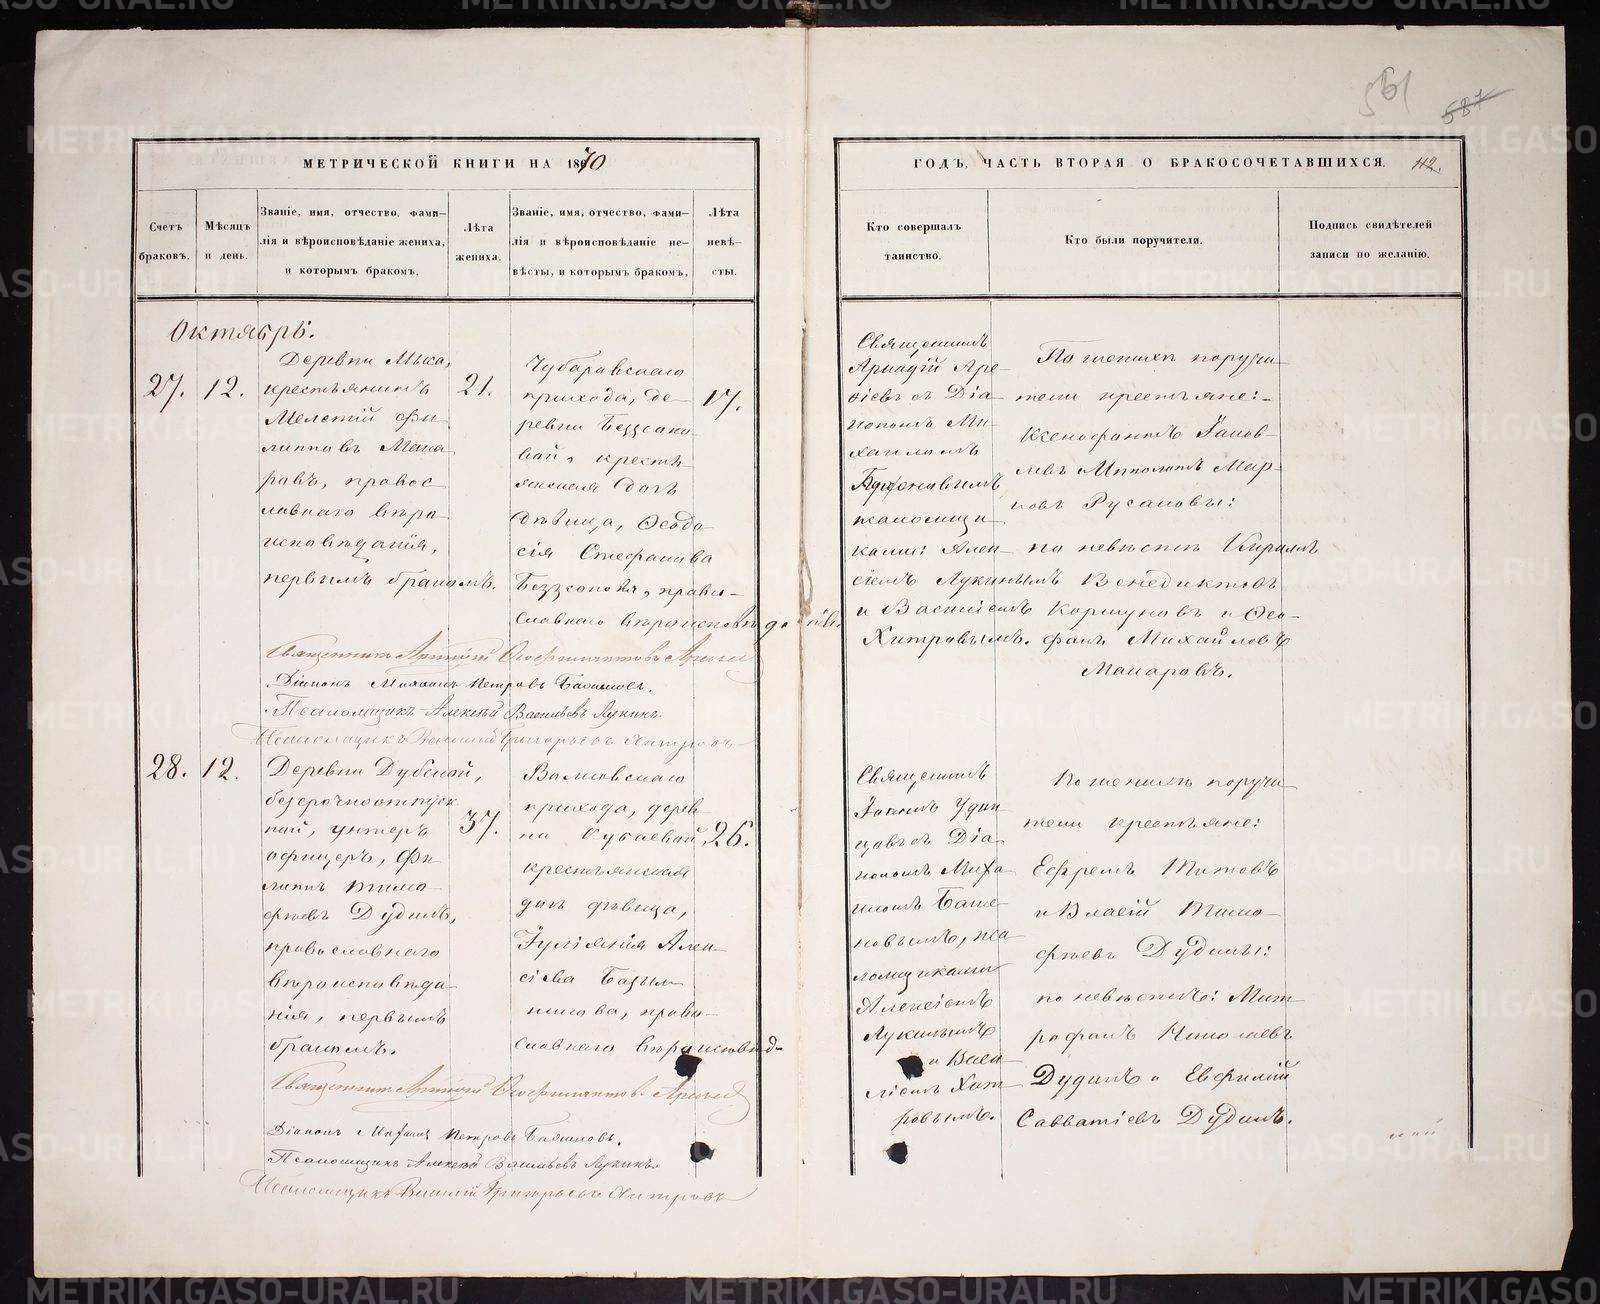 561
587
МЕТРИЧЕСКОЙ КНИГИ НА 1870
ГОДЪ, ЧАСТЬ ВТОРАЯ О БРАКОСОЧЕТАВШИХСЯ.
Счетъ
браковъ.
Мѣсяцъ
и день.
Званіе, имя, отчество, фами-
лія и вѣроисповѣданіе жениха,
и которымъ бракомъ.
Лѣта
жениха.
Званіе, имя, отчество, фами-
лія и вѣроисповѣданіе не-
вѣсты, и которымъ бракомъ,
Лѣта
невѣ-
сты.
Кто совершалъ
таинство.
Кто были поручители.
Подпись свидѣтелей
записи по желанію.
Октябрь.
27.
12.
Деревни Мыса,
крестьянинъ
Мелетій Фи-
липповъ Мака-
ровъ, правос-
лавнаго вѣро-
исповѣданія,
первымъ бракомъ.
21.
Чубаровскаго
прихода, де-
ревни Бессоно-
вой, кресть-
янская дочь
дѣвица, Ѳеодо-
сія Стефанова
Бессонова, право-
славнаго вѣроисповѣданія.
17.
Священникъ
Аркадій Аре-
фіевъ съ Діа-
кономъ Ми-
хаиломъ
псаломщи-
ками: Алек-
сіемъ Лукинымъ
и Василіемъ
Хитровымъ.
По женихѣ поручи-
тели крестьяне:
Ксенофонтъ Іаков-
левъ Ипполитъ Мар-
ковъ Русановы:
по невѣстѣ Кириллъ
Венедиктовъ
Коршуновъ и Ѳео-
фанъ Михайловъ
Макаровъ.
Діаконъ Михаилъ Петровъ Баженовъ.
Псаломщикъ Алексѣй Васильевъ Лукинъ.
Псаломщикъ Василій Григорьевъ Хитровъ
28.
12.
Деревни Дубской,
безсрочноотпуск-
ной, унтеръ
офицеръ, Фи-
липпъ Тимо-
фѣевъ Дудинъ,
православнаго
вѣроисповѣда-
нія, первымъ
бракомъ.
37.
прихода, дерев-
ни Кубаевой,
крестьянская
дочь дѣвица,
Іуліанія Алек-
сіева
право-
славнаго вѣроисповѣд-
26.
Священникъ
Іоаннъ Удин-
цовъ съ Діа-
кономъ Миха-
иломъ Баже-
новымъ, пса-
ломщиками
Алексіемъ
Лукинымъ
и Васи-
ліемъ Хит-
ровымъ.
По женихѣ поручи-
тели крестьяне:
Ефремъ Титовъ
и Власій Тимо-
фѣевъ Дудины:
по невѣстѣ: Мит-
рофанъ Николаевъ
Дудинъ и Евфимій
Савватіевъ Дудинъ.
Діаконъ Михаилъ Петровъ Баженовъ.
Псаломщикъ Алексѣй Васильевъ Лукинъ.
Псаломщикъ Василій Григорьевъ Хитровъ
METRIKI.GASO-URAL.RU